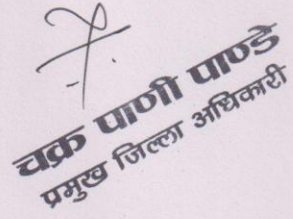 चक्र पाणी पाण्डे
प्रमुख जिल्ला अधिकारी